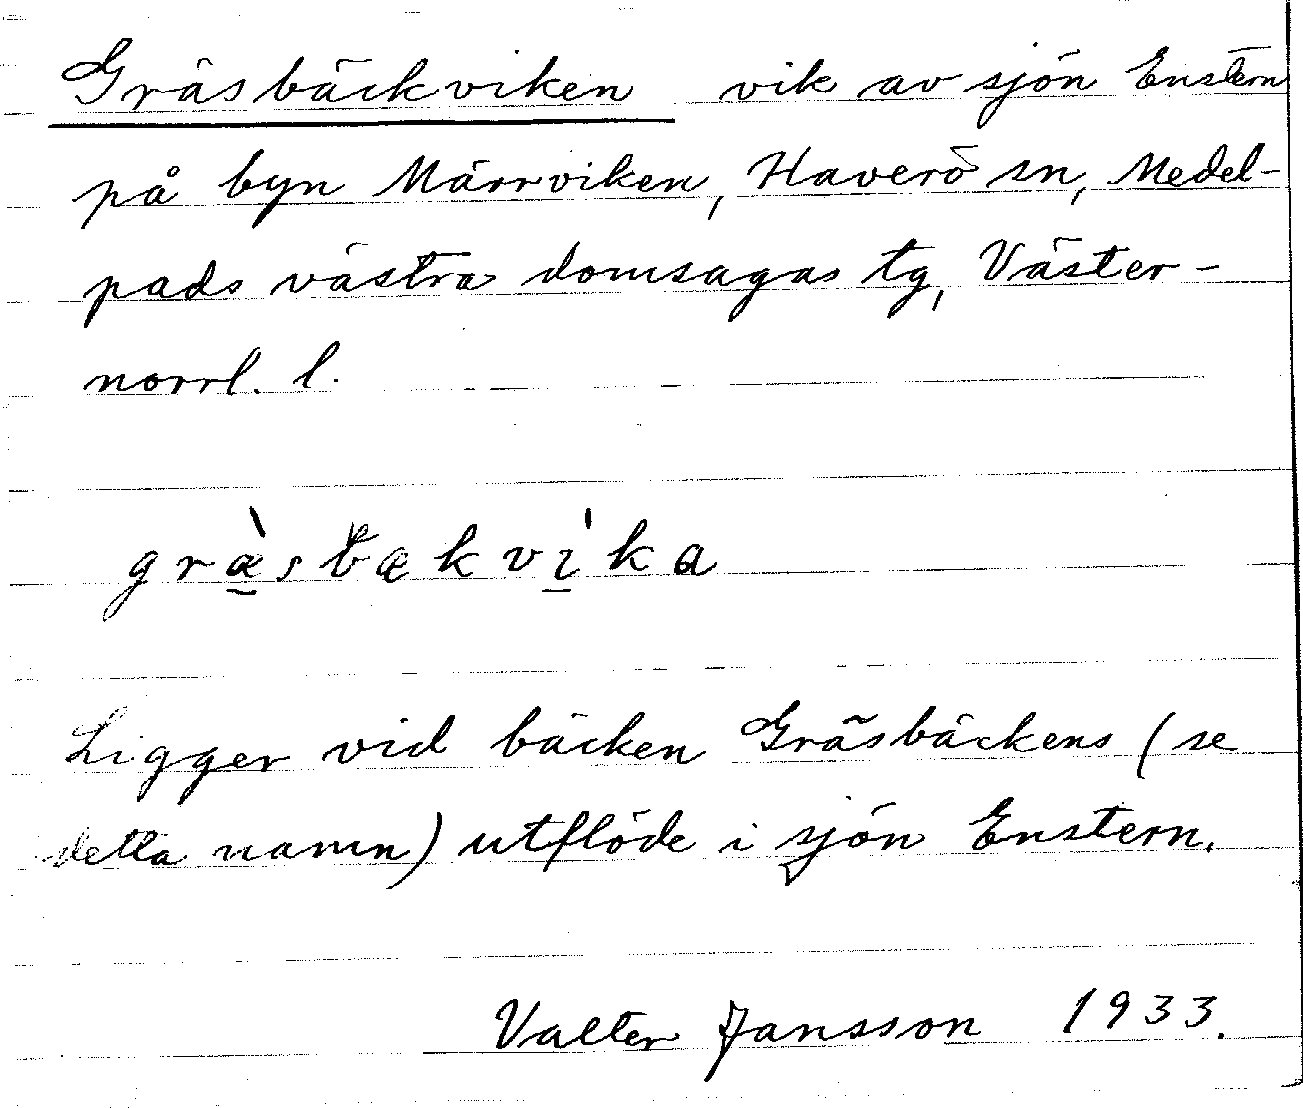 Gräsbäckviken vik av sjön Enstern
på byn Märrviken, Haverö sn, Medel-
pads västra domsagas tg, Väster-
norrl. l.
græ̠̀sbækvi̠̍ka
Ligger vid bäcken Gräsbäckens (se
detta namn) utflöde i sjön Enstern.
Valter Jansson 1933.